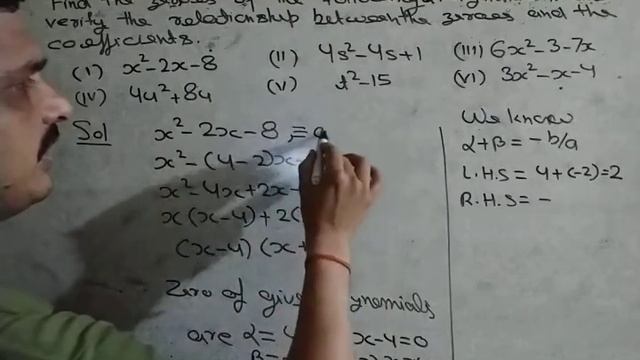 Find the zeroes of the following
verify the relationship between the zeroes and the
coefficients.
(I) x²-2x-8 (II) 4s²-4s+1 (III) 6x²-3-7x
(IV) 4u²+8u (V) t²-15 (VI) 3x²-x-4
Sol x²-2x-8, =
x²-(4-2)x-
x²-4x+2x-
x(x-4)+2(
(x-4)(x+
Zero of given Polynomials
are α=4 x-4=0
We know
α+β=-b/a
L.H.S=4+(-2)=2
R.H.S=-